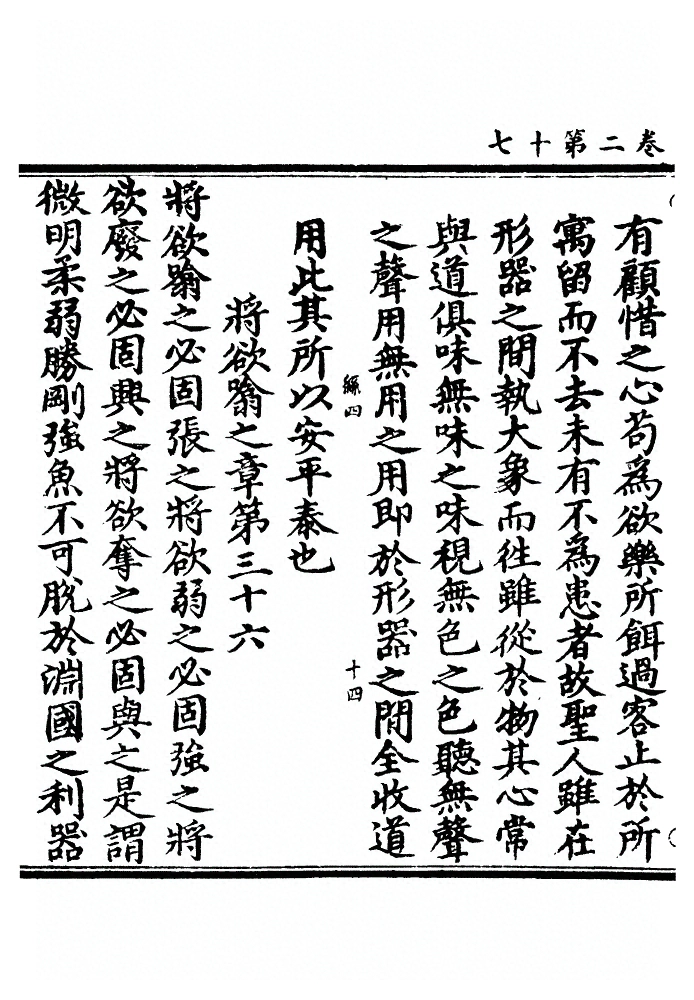 卷二第十七
有顧惜之心苟為欲樂所餌過客止於所
寓留而不去未有不為患者故聖人雖在
形器之間執大象而徃雖從於物其心常
與道俱味無味之味視無色之色聽無聲
之聲用無用之用即於形器之間全收道
絲四
十四
用此其所以安平泰也
將欲翕之章第三十六
將欲翕之必固張之將欲弱之必固強之將
欲廢之必固興之將欲奪之必固與之是謂
微明柔弱勝剛強魚不可脫於淵國之利器